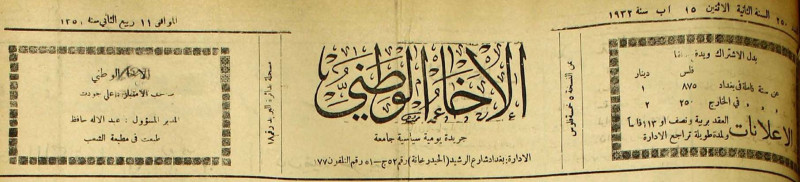 ٢٥٠ السنة الثانية الاثنين ١٥ اب سنة ١٩٣٢
الموافق ١١ ربيع الثاني سنة ١٣٥١
بدل الاشتراك ويدفع
فلس دينار
عن سنة كاملة في بغداد ٨٧٥ ١
في الخارج ٢٥٠ ٢
الاعلانات
العقد برية ونصف او ١٣ فلسا
ولمدة طويلة تراجع الادارة
ثمن النسخة ٥ خمسة فلوس
الاخاء الوطني
جريدة يومية سياسية جامعة
الادارة: بغداد شارع الرشيد (الحيدرخانة) رقم ٥٢ج–٥١ رقم التلفون ٧٧
مسجلة بدائرة البريد رقم ١٨
الاخاء الوطني
صاحب الامتياز: علي جودت
المدير المسؤول: عبد الاله حافظ
طبعت في مطبعة الشعب